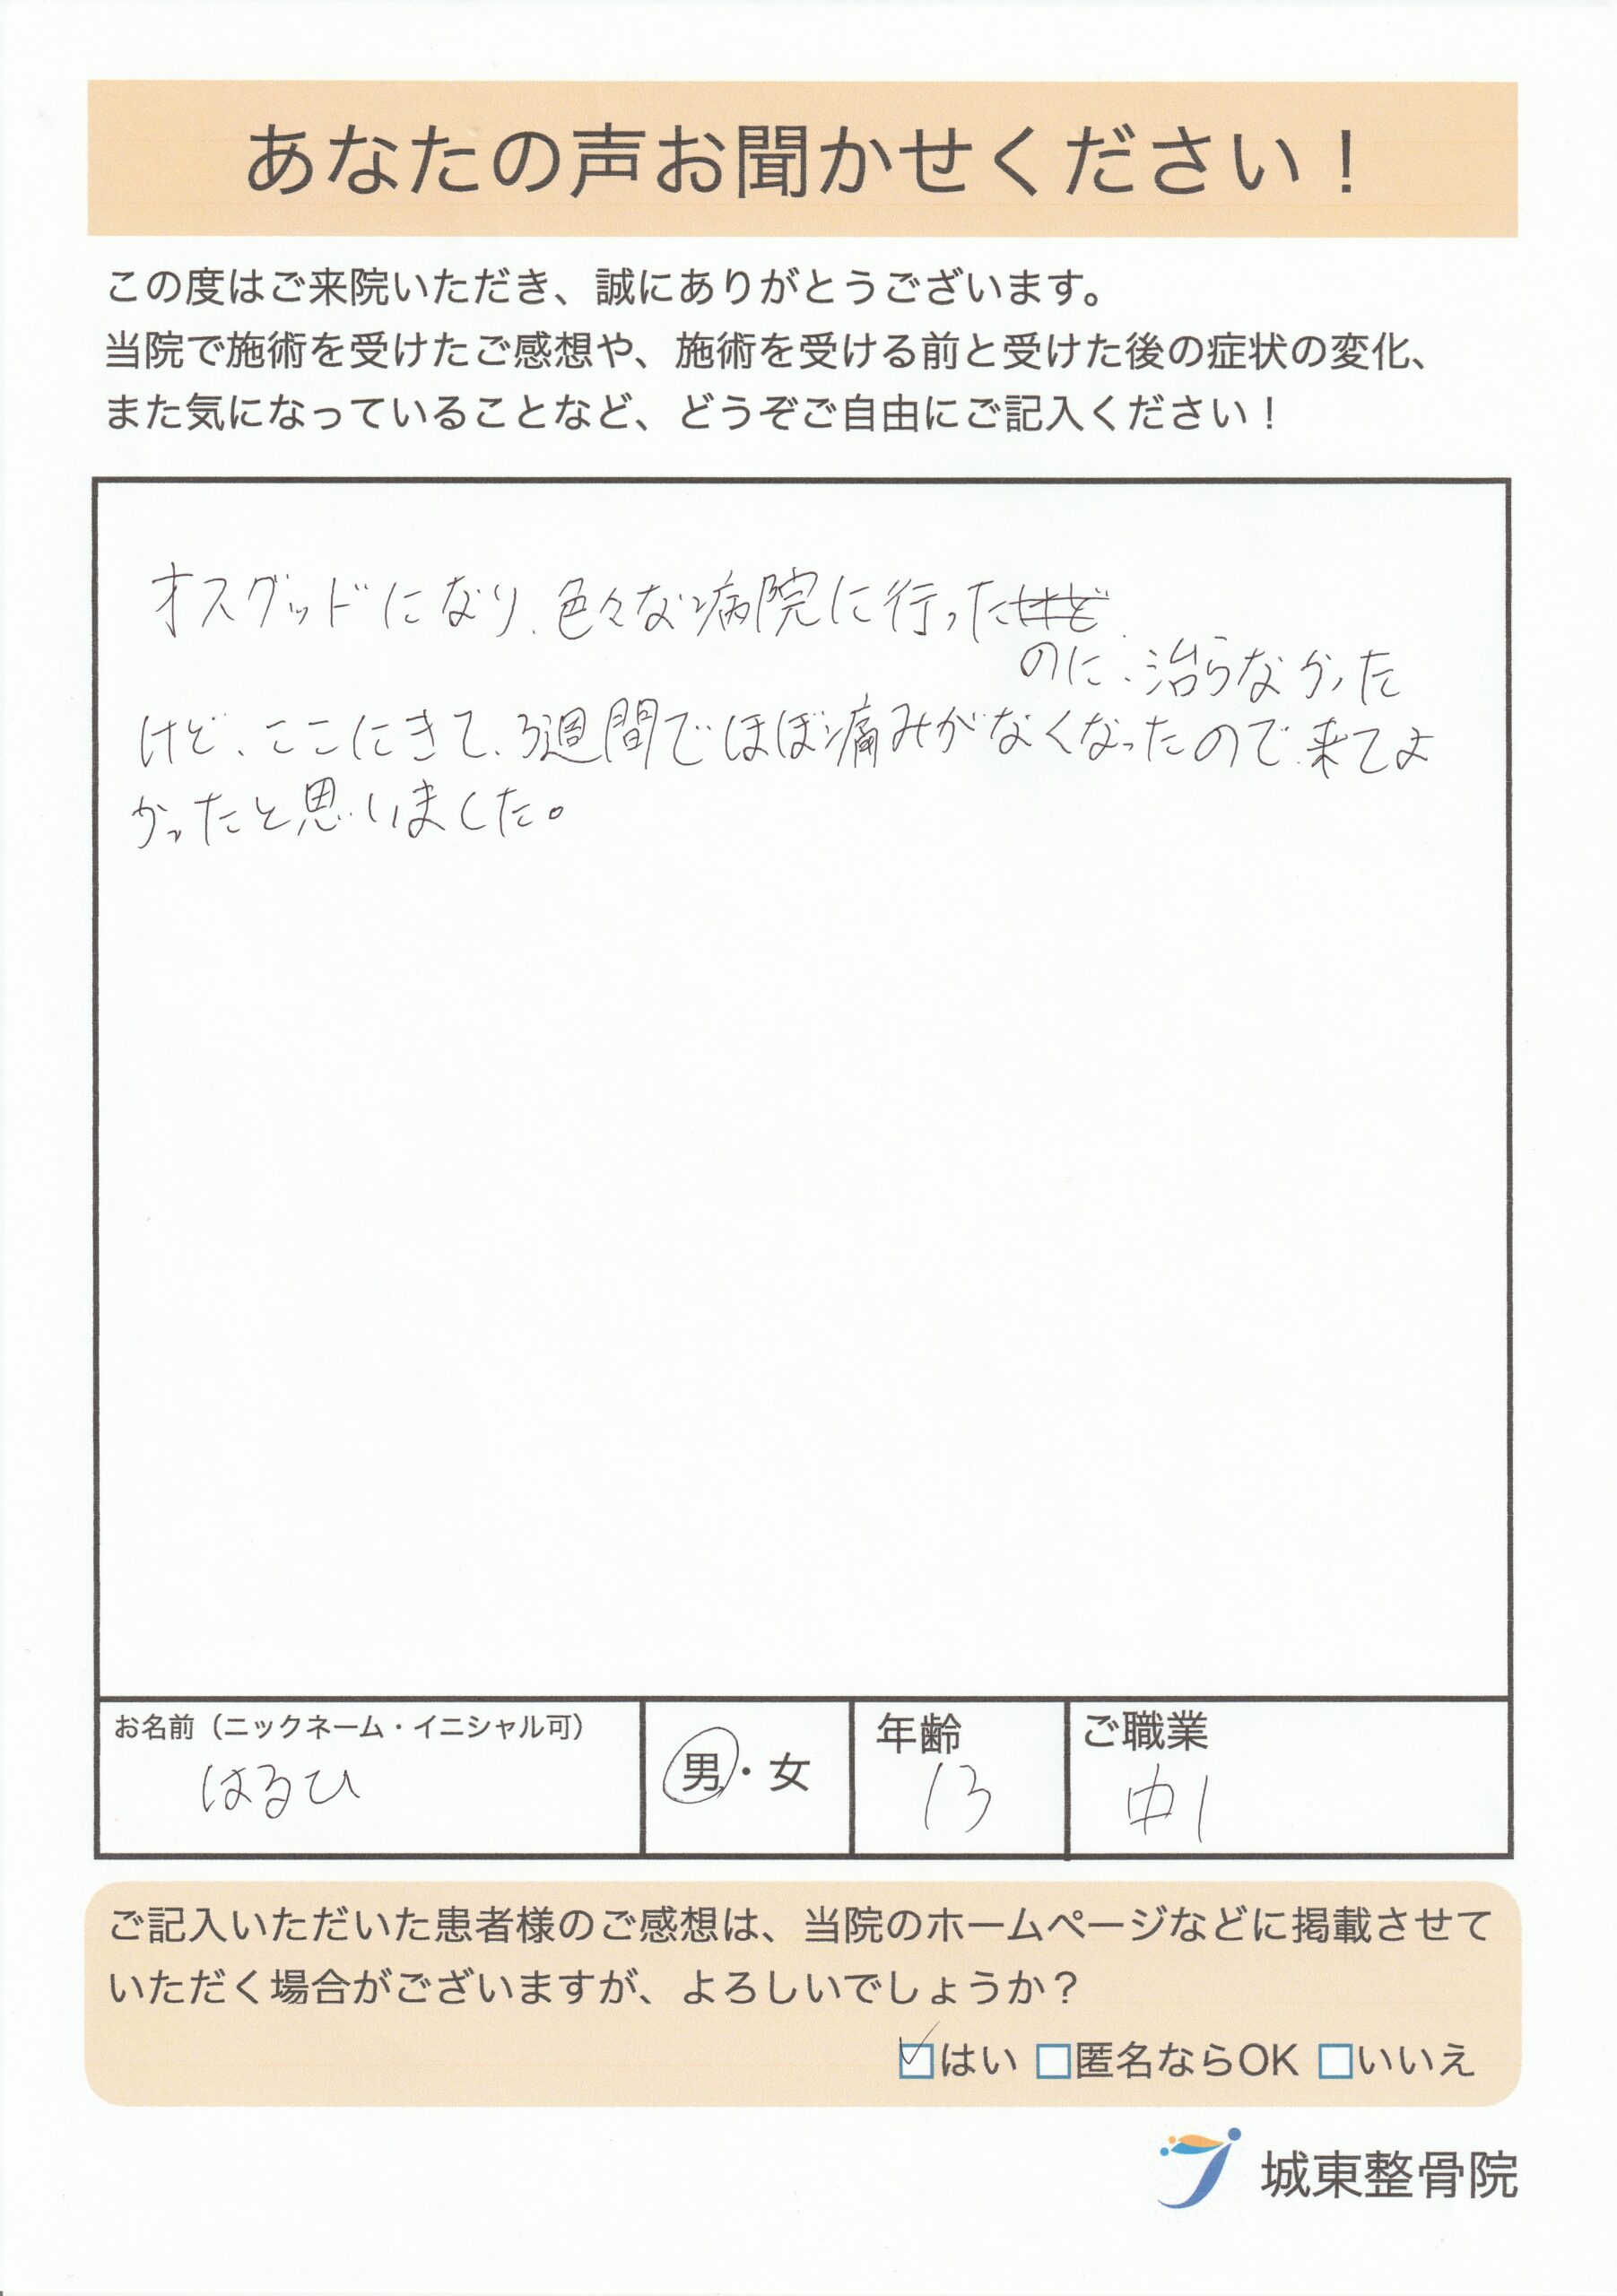 あなたの声お聞かせください！
この度はご来院いただき、誠にありがとうございます。
当院で施術を受けたご感想や、施術を受ける前と受けた後の症状の変化、
また気になっていることなど、どうぞご自由にご記入ください！
オスグッドになり、色々な病院に行ったけど
のに、治らなかった
けど、ここにきて、3週間でほぼ痛みがなくなったので、来てよ
かったと思いました。
お名前（ニックネーム・イニシャル可）
はるひ
男・女
年齢
13
ご職業
中1
ご記入いただいた患者様のご感想は、当院のホームページなどに掲載させて
いただく場合がございますが、よろしいでしょうか？
はい 匿名ならOK いいえ
城東整骨院